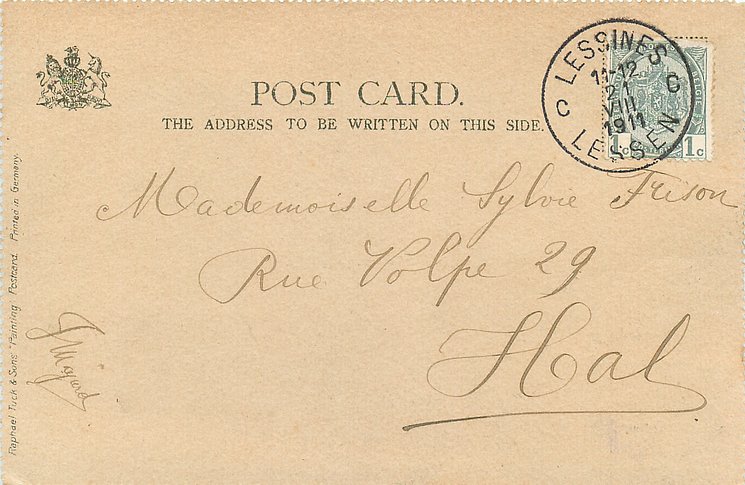 POST CARD.
THE ADDRESS TO BE WRITTEN ON THIS SIDE.
LESSINES
11-12
21
VIII
1911
C C
LESSEN
1c 1c
Mademoiselle Sylvie Frison
Rue Volpe 29
Hal
Raphael Tuck & Sons' "Painting" Postcard. Printed in Germany.